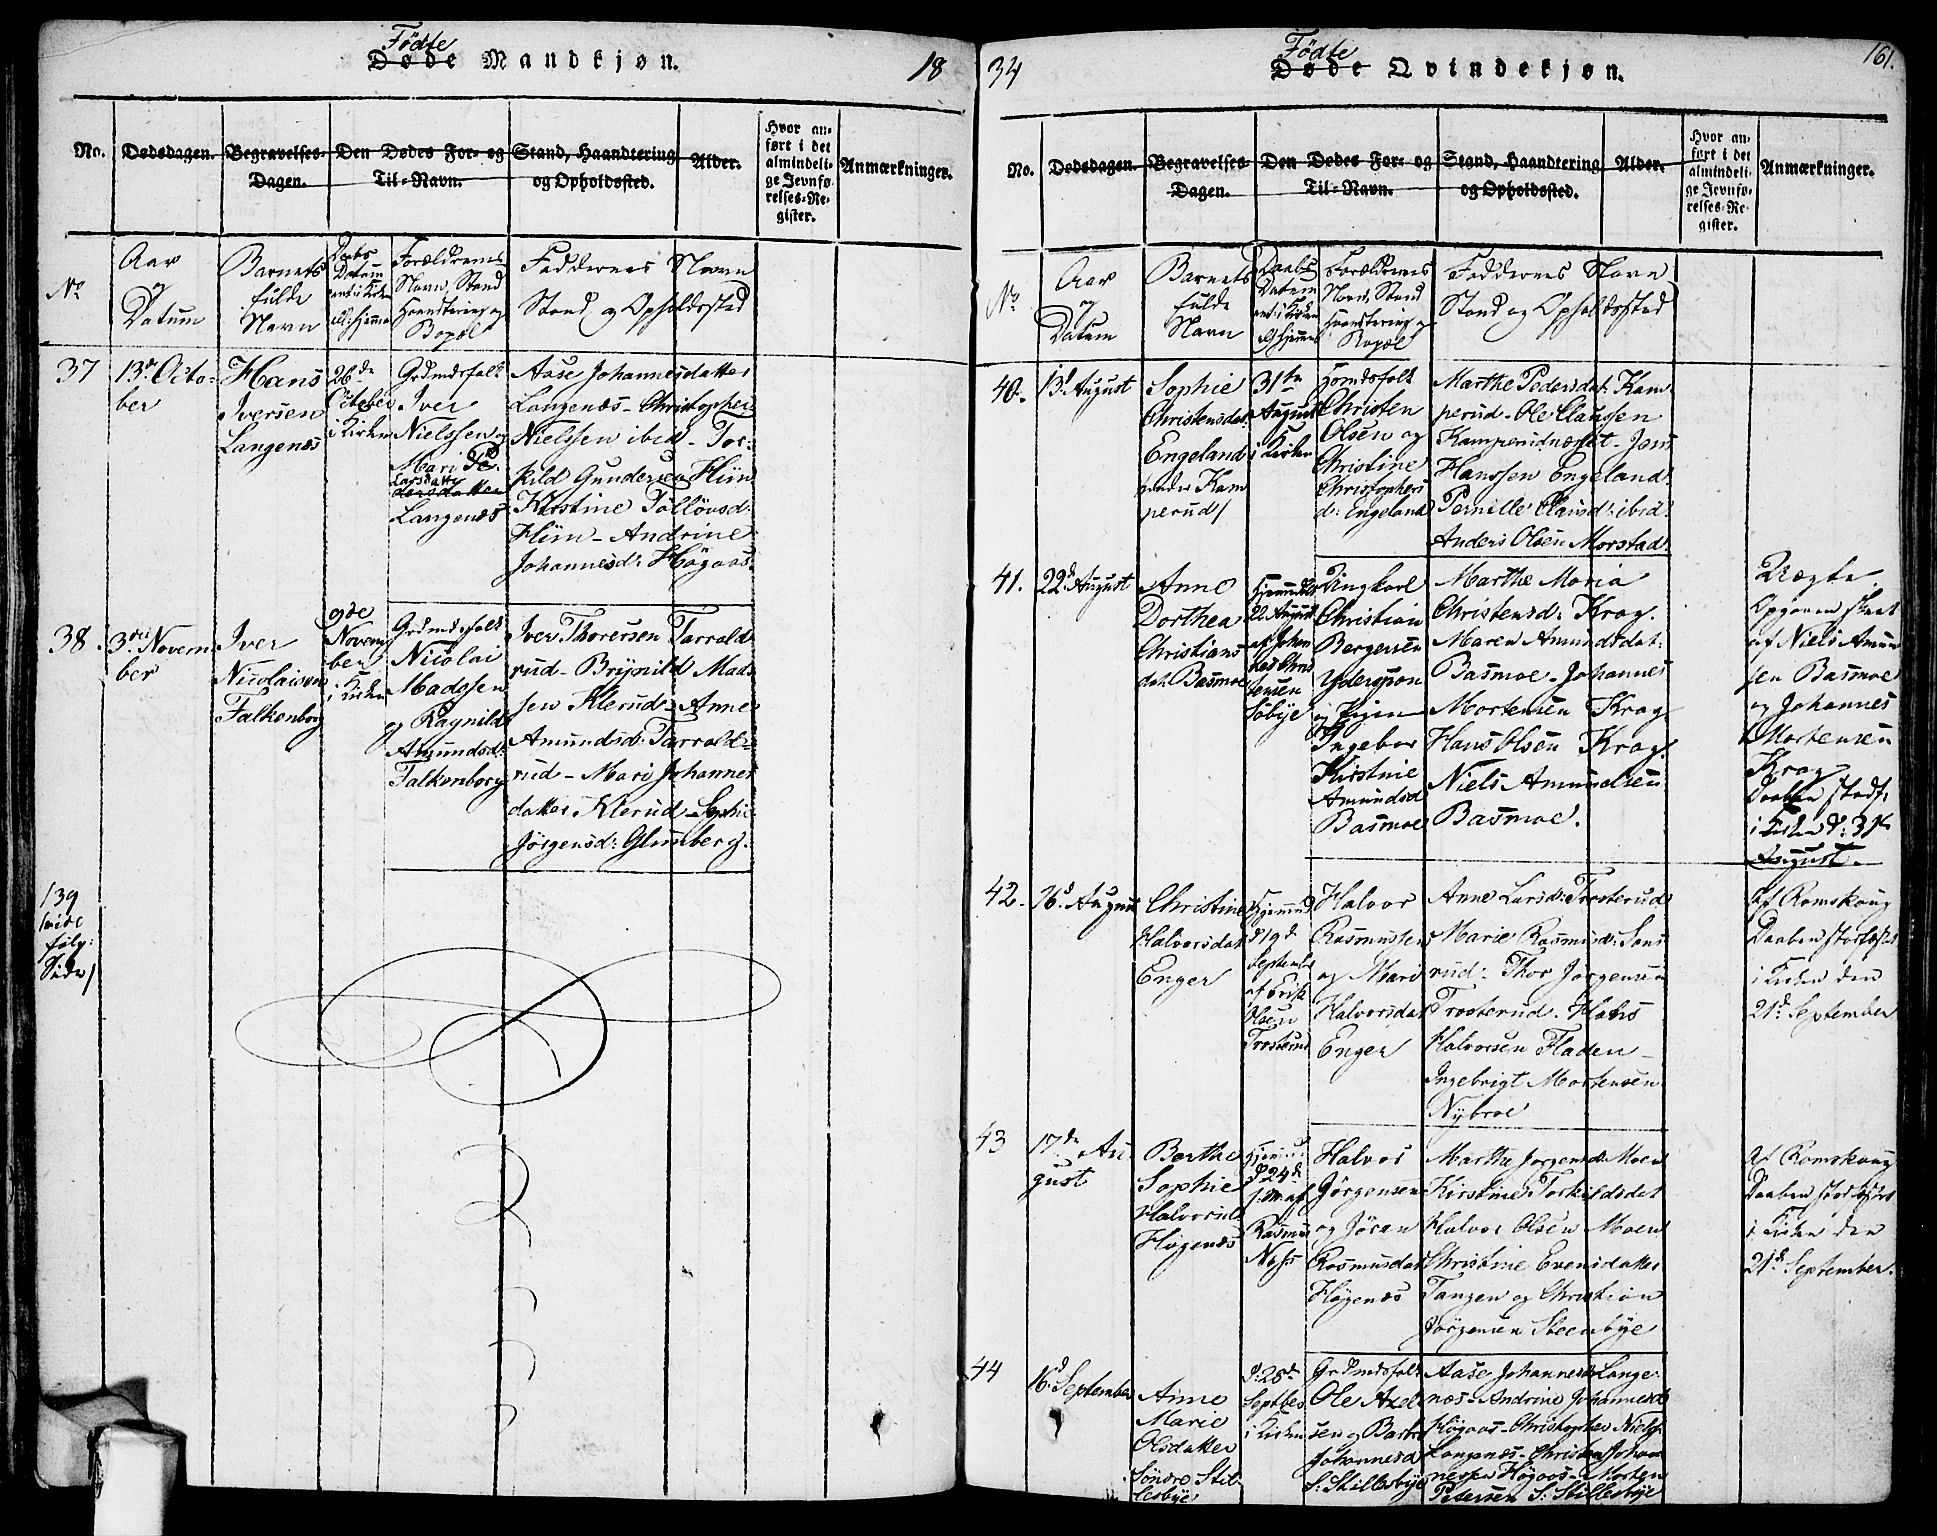 Fødte
Døde Mandkjøn.
18
No.
Dødsdagen.
Begravelses-
Dagen.
Den Dødes For- og
Til-Navn.
Stand, Haandtering
og Opholdssted.
Alder.
Hvor an-
ført i det
almindeli-
ge Jevnfø-
relses-Re-
gister.
Anmærkninger.
No
Aar
og
Datum
Barnets
fulde
Navn
Daabs
Datum
Forældrenes
Navn, Stand
Haandtering og
Bopæl
Faddernes Navn
Stand og Opholdssted
37
13de Octo-
ber
Hans
Iversen
Langenæs
26de
October
i Kirken
Grdmdsfolk
Iver
Nielssen og
Mari Pe-
Larsdatter
dersdatter
Langenæs
Aase Johannesdatter
Langenæs - Christopher
Nielssen ibid - Tor-
kild Gundersen Hiin
Kirstine Tolløvsd:
Hiin - Andrine
Johannesd: Högaas.
38.
3die Novem
ber
Iver
Nicolaisen
Falkenborg
9de
Novem
ber
i Kirken
Grdmdsfolk
Nicolai
Madssen
og Ragnild
Amundsd:
Falkenborg
Iver Thorersen Tarrald
rud - Brynild Mads
sen Klerud - Anne
Amundsd: Tarrald-
rud - Mari Johannes
datter Klerud - Sophie
Jörgensd: Glimberg.
139
vide
følg:
Side/
34
Fødte
Døde Qvindekjøn.
161.
No.
Dødsdagen.
Begravelses-
Dagen.
Den Dødes For- og
Til-Navn.
Stand, Haandtering
og Opholdssted.
Alder.
Hvor an-
ført i det
almindeli-
ge Jevnfø-
relses-Re-
gister.
Anmærkninger.
No
Aar
og
Datum
Barnets
fulde
Navn
Daabs
Datum
Forældrenes
Navn, Stand
Haandtering og
Bopæl
Faddernes Navn
Stand og Opholdssted
40.
13d August
Sophie
Christensdat
Engeland
under Kam
perud/
31te
August
i Kirken
Christen
Olsen og
Christine
Christophers
d: Engeland
Marthe Pedersdat: Kam
perud - Ole Clausen
Kamperudnæset - Jens
Hanssen Engeland:
Pernille Clausd: ibid:
Anders Olsen Morstad:
41.
22d August
Anne
Dorthea
Christians
dat Basmoe
Hjemmedøbt
22 August
af Johan
nes Chris
tensen
Søbye
Ungkarl
Christian
Bergersen
og Pigen
Ingebor
Kirstine
Amundsd
Basmoe
Marthe Maria
Christensd: Krog.
Maren Amundsdat:
Basmoe - Johannes
Mortensen Krog.
Hans Olsen Krog.
Niels Amundsen
Basmoe.
Uægte.
Opgaven skeet
af Niels Amun
sen Basmoe
og Johannes
Mortensen
Krog
Daaben stadf:
i Kirken d: 31te
August.
42.
16d August
Christine
Halvorsdat
Enger
d 19d
September
af Erik
Olsen
Trosterud
Halvor
Rasmussen
og Mari
Halvorsdat
Enger
Anne Larsd: Trosterud
Marie Rasmusd: Sans
rud: Thor Jørgensen
Trosterud. Hans
Halvorsen Fladen -
Ingebrigt Mortensen
Nÿbroe
af Romskoug
Daaben stadfæstet
i Kirken den
21d September
43
17de Au-
gust
Berthe
Sophie
Halvorsd
Høgenæs
d 24d
s: M: af
Rasmus
Næss
Halvor
Jørgensen
og Jøran
Rasmusdat
Høgenæs
Marthe Jørgensd: Moen
Kirstine Torkildsdat
Halvor Olsen Moen
Christine Evensdatter
Tangen og Christian
Jørgensen Steenbye
af Romskoug
Daaben stadfæstet
i Kirken den
21d September.
44
16d September
Anne
Marie
Olsdatter
Söndre Stil-
lesbye
d: 28de
Septbr
i Kirken
Grdmdsfolk
Ole Axel
sen og Barbr
Johannesd
S: Stillesbye
Aase Johannesd: Lange-
næs - Andrine Johannesd
Høgaas - Christopher Niels
Langenæs - Christen Johan
nessen Høgaas - Morten
Petersen S: Stillesbye